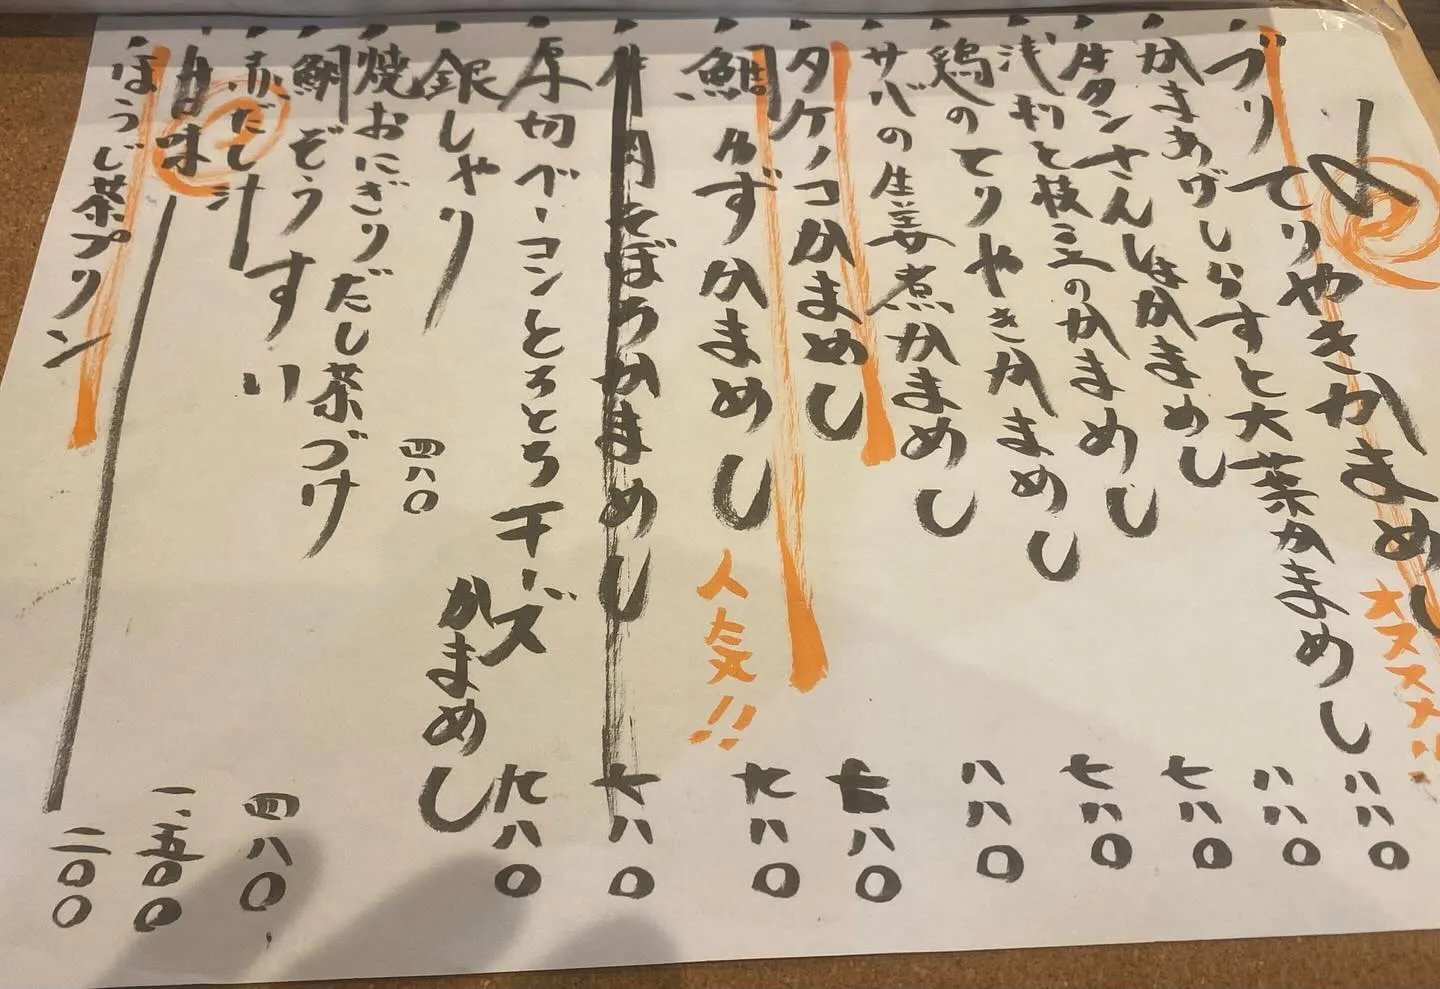 ブリてりやきかまめし オススメ!!
かまあげしらすと大葉かまめし 八八〇
牛タンさんしょかまめし 八八〇
浅利と枝豆のかまめし 七八〇
鶏のてりやきかまめし 七八〇
サバの生姜煮かまめし 八八〇
タケノコかまめし 七八〇
鯛 かまめし 人気!! 九八〇
そぼろかまめし 七八〇
厚切ベーコンとろとろチーズ
かまめし 九八〇
銀しゃり 四八〇
焼おにぎりだし茶づけ
鯛ぞうすい
赤だし汁 四八〇
甘味 一、五〇〇
ほうじ茶プリン 二〇〇